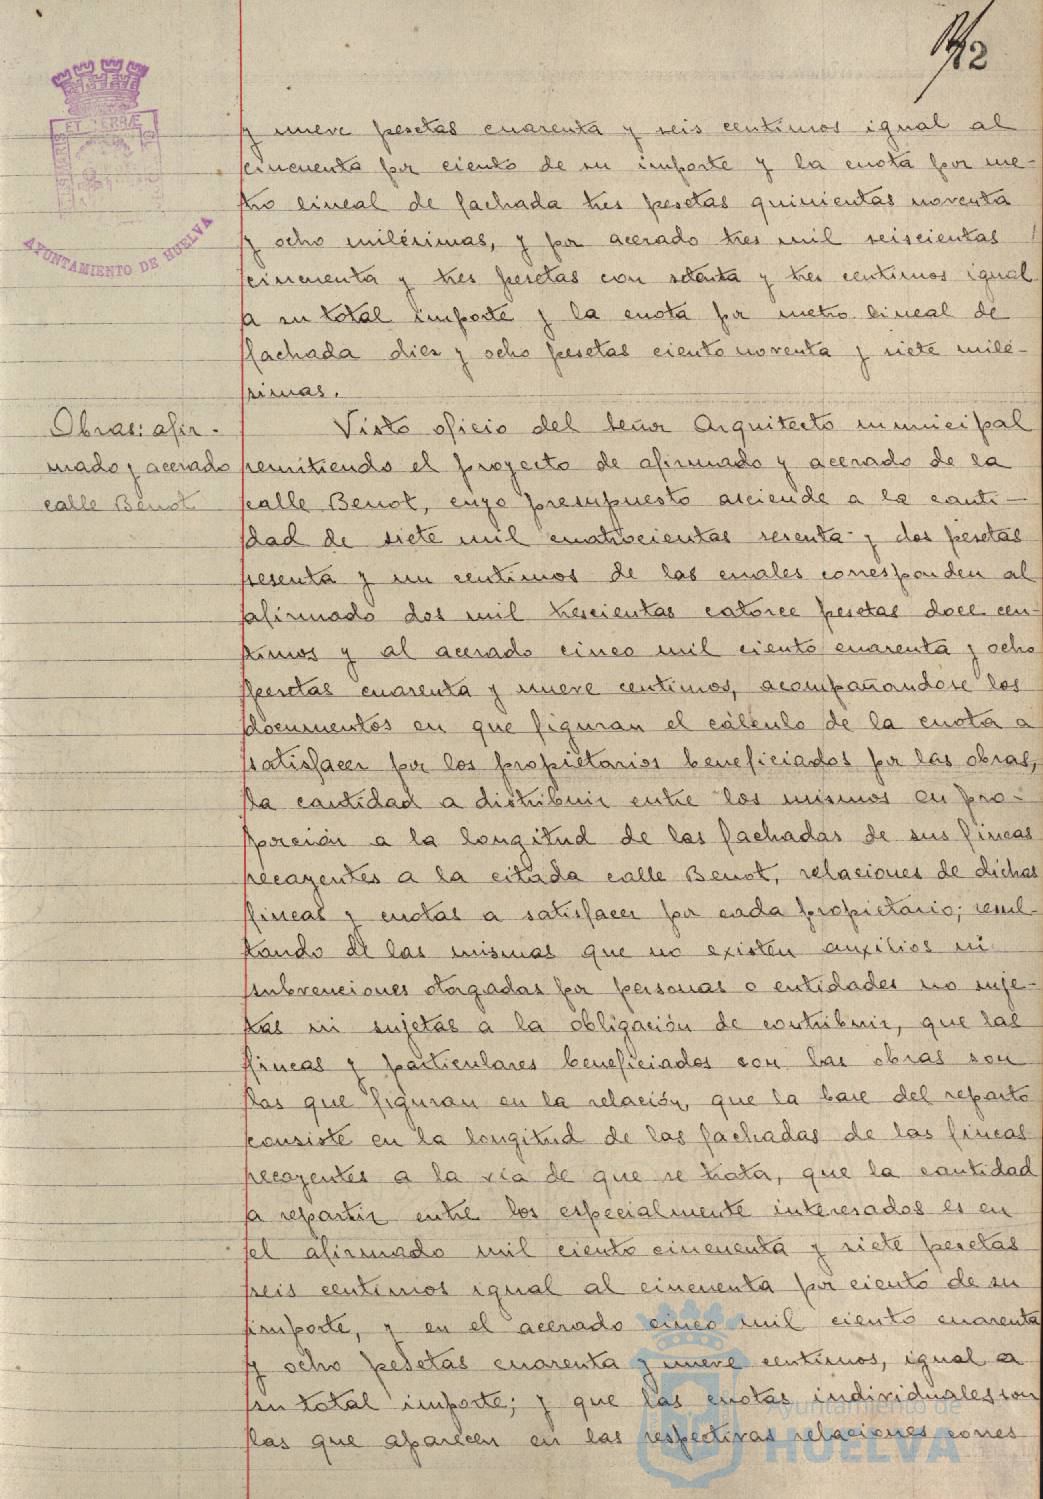 12
y nueve pesetas cuarenta y seis centimos igual al
cincuenta por ciento de su importe y la cuota por me-
tro lineal de fachada tres pesetas quinientas noventa
y ocho milésimas, y por acerado tres mil seiscientas
cincuenta y tres pesetas con setenta y tres centimos igual
a su total importe y la cuota por metro lineal de
fachada diez y ocho pesetas ciento noventa y siete milé-
simas.
Obras: afir-
mado y acerado
calle Benot
Visto oficio del señor Arquitecto municipal
remitiendo el proyecto de afirmado y acerado de la
calle Benot, cuyo presupuesto asciende a la canti-
dad de siete mil cuatrocientas sesenta y dos pesetas
sesenta y un centimos de las cuales corresponden al
afirmado dos mil trescientas catorce pesetas doce cen-
timos y al acerado cinco mil ciento cuarenta y ocho
pesetas cuarenta y nueve centimos, acompañandose los
documentos en que figuran el cálculo de la cuota a
satisfacer por los propietarios beneficiados por las obras,
la cantidad a distribuir entre los mismos en pro-
porción a la longitud de las fachadas de sus fincas
recayentes a la citada calle Benot, relaciones de dichas
fincas y cuotas a satisfacer por cada propietario; resul-
tando de las mismas que no existen auxilios ni
subvenciones otorgadas por personas o entidades no suje-
tas ni sujetas a la obligación de contribuir, que las
fincas y particulares beneficiados con las obras son
las que figuran en la relación, que la base del reparto
consiste en la longitud de las fachadas de las fincas
recayentes a la vía de que se trata, que la cantidad
a repartir entre los especialmente interesados es en
el afirmado mil ciento cincuenta y siete pesetas
seis centimos igual al cincuenta por ciento de su
importe, y en el acerado cinco mil ciento cuarenta
y ocho pesetas cuarenta y nueve centimos, igual a
su total importe; y que las cuotas individuales son
las que aparecen en las respectivas relaciones corres
AYUNTAMIENTO DE HUELVA
Ayuntamiento de
HUELVA